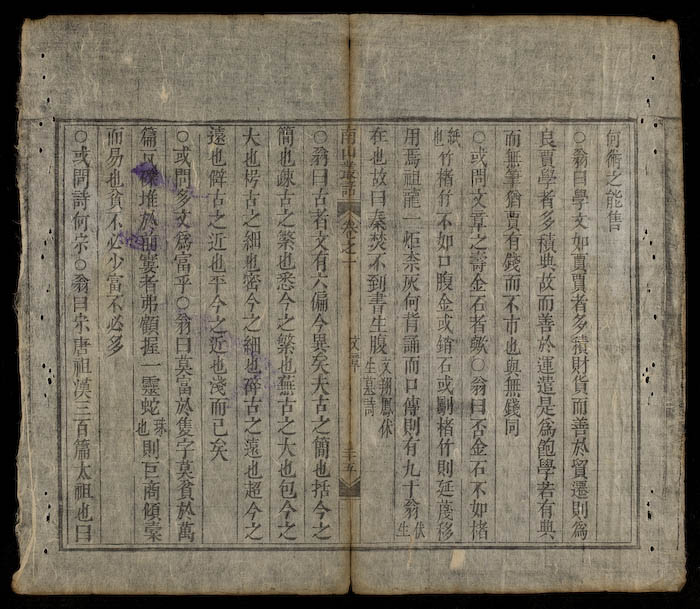 何術之能售
○翁曰學文如賈賈者多積財貨而善於貿遷則爲
良賈學者多積典故而善於運遣是爲飽學若有典
而無筆猶賈有錢而不市也與無錢同
○或問文章之壽金石者歟○翁曰否金石不如楮
紙也竹楮竹不如口腹金或銷石或楮竹則延蔑移
用焉祖龍一炬柰灰何背誦而口傳則有九十翁伏生
在也故曰秦焚不到書生腹文翔鳳伏生墓詩
南山
卷之一
文章
三十五
○翁曰古者文有六偏今異矣夫古之簡也括今之
簡也疎古之繁也悉今之繁也蕪古之大也包今之
大也古之細也密今之細也碎古之遠也超今之
遠也僻古之近也平今之近也淺而已矣
○或問多文爲富乎○翁曰莫富於隻字莫貧於萬
篇瓦礫堆於前寠者弗顧握一靈蛇珠也則巨商傾橐
而易也貧不必少富不必多
○或問詩何宗○翁曰宋唐祖漢三百篇太祖也曰